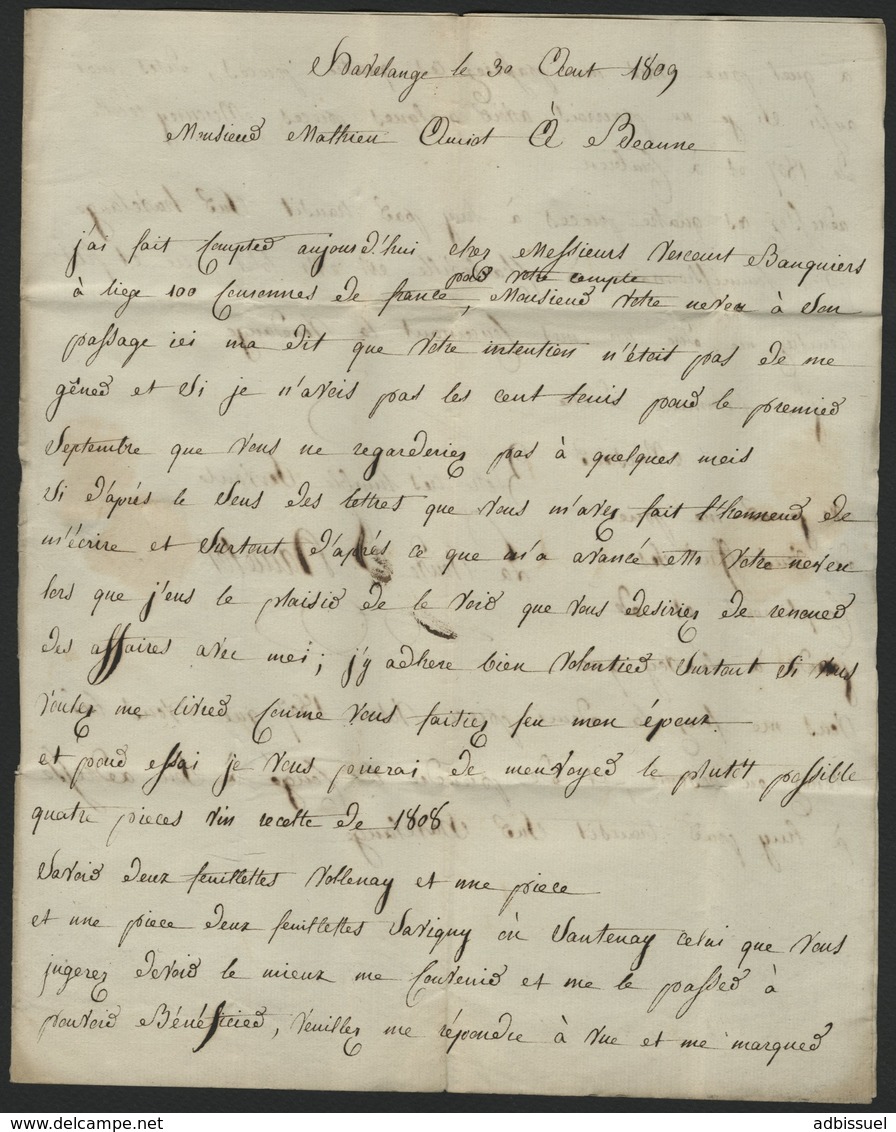 Havelange le 30 Aout 1809
Monsieur Mathieu Amiot A Beaune
j'ai fait Compter aujourd'hui chez Messieurs Vercour Banquiers
pour votre compte
à liege 100 Couronnes de france, Monsieur Votre neveu à Son
passage ici ma dit que Votre intention n'étoit pas de me
gêner et Si je n'avois pas les cent louis pour le premier
Septembre que Vous ne regarderiez pas à quelques mois
Si d'après le Sens des lettres que Vous m'avez fait l'honneur de
m'écrire et Surtout d'après ce que m'a avancé Votre neveu
lors que j'eus le plaisir de le Voir que Vous desiriez de renouer
des affaires avec moi; j'y adhere bien Volontier Surtout Si Vous
Voulez me livrer Comme Vous faisiez feu mon époux
et pour essai je Vous prierai de menvoyer le plutôt possible
quatre pieces vin recolte de 1808
Savoir deux feuillettes Vollenay et une piece
et une piece deux feuillettes Savigny ou Santenay celui que Vous
jugerez devoir le mieux me Convenir et me le passer à
pouvoir Bénéficier, Veuillez me répondre à Vue et me marquer
adbissuel